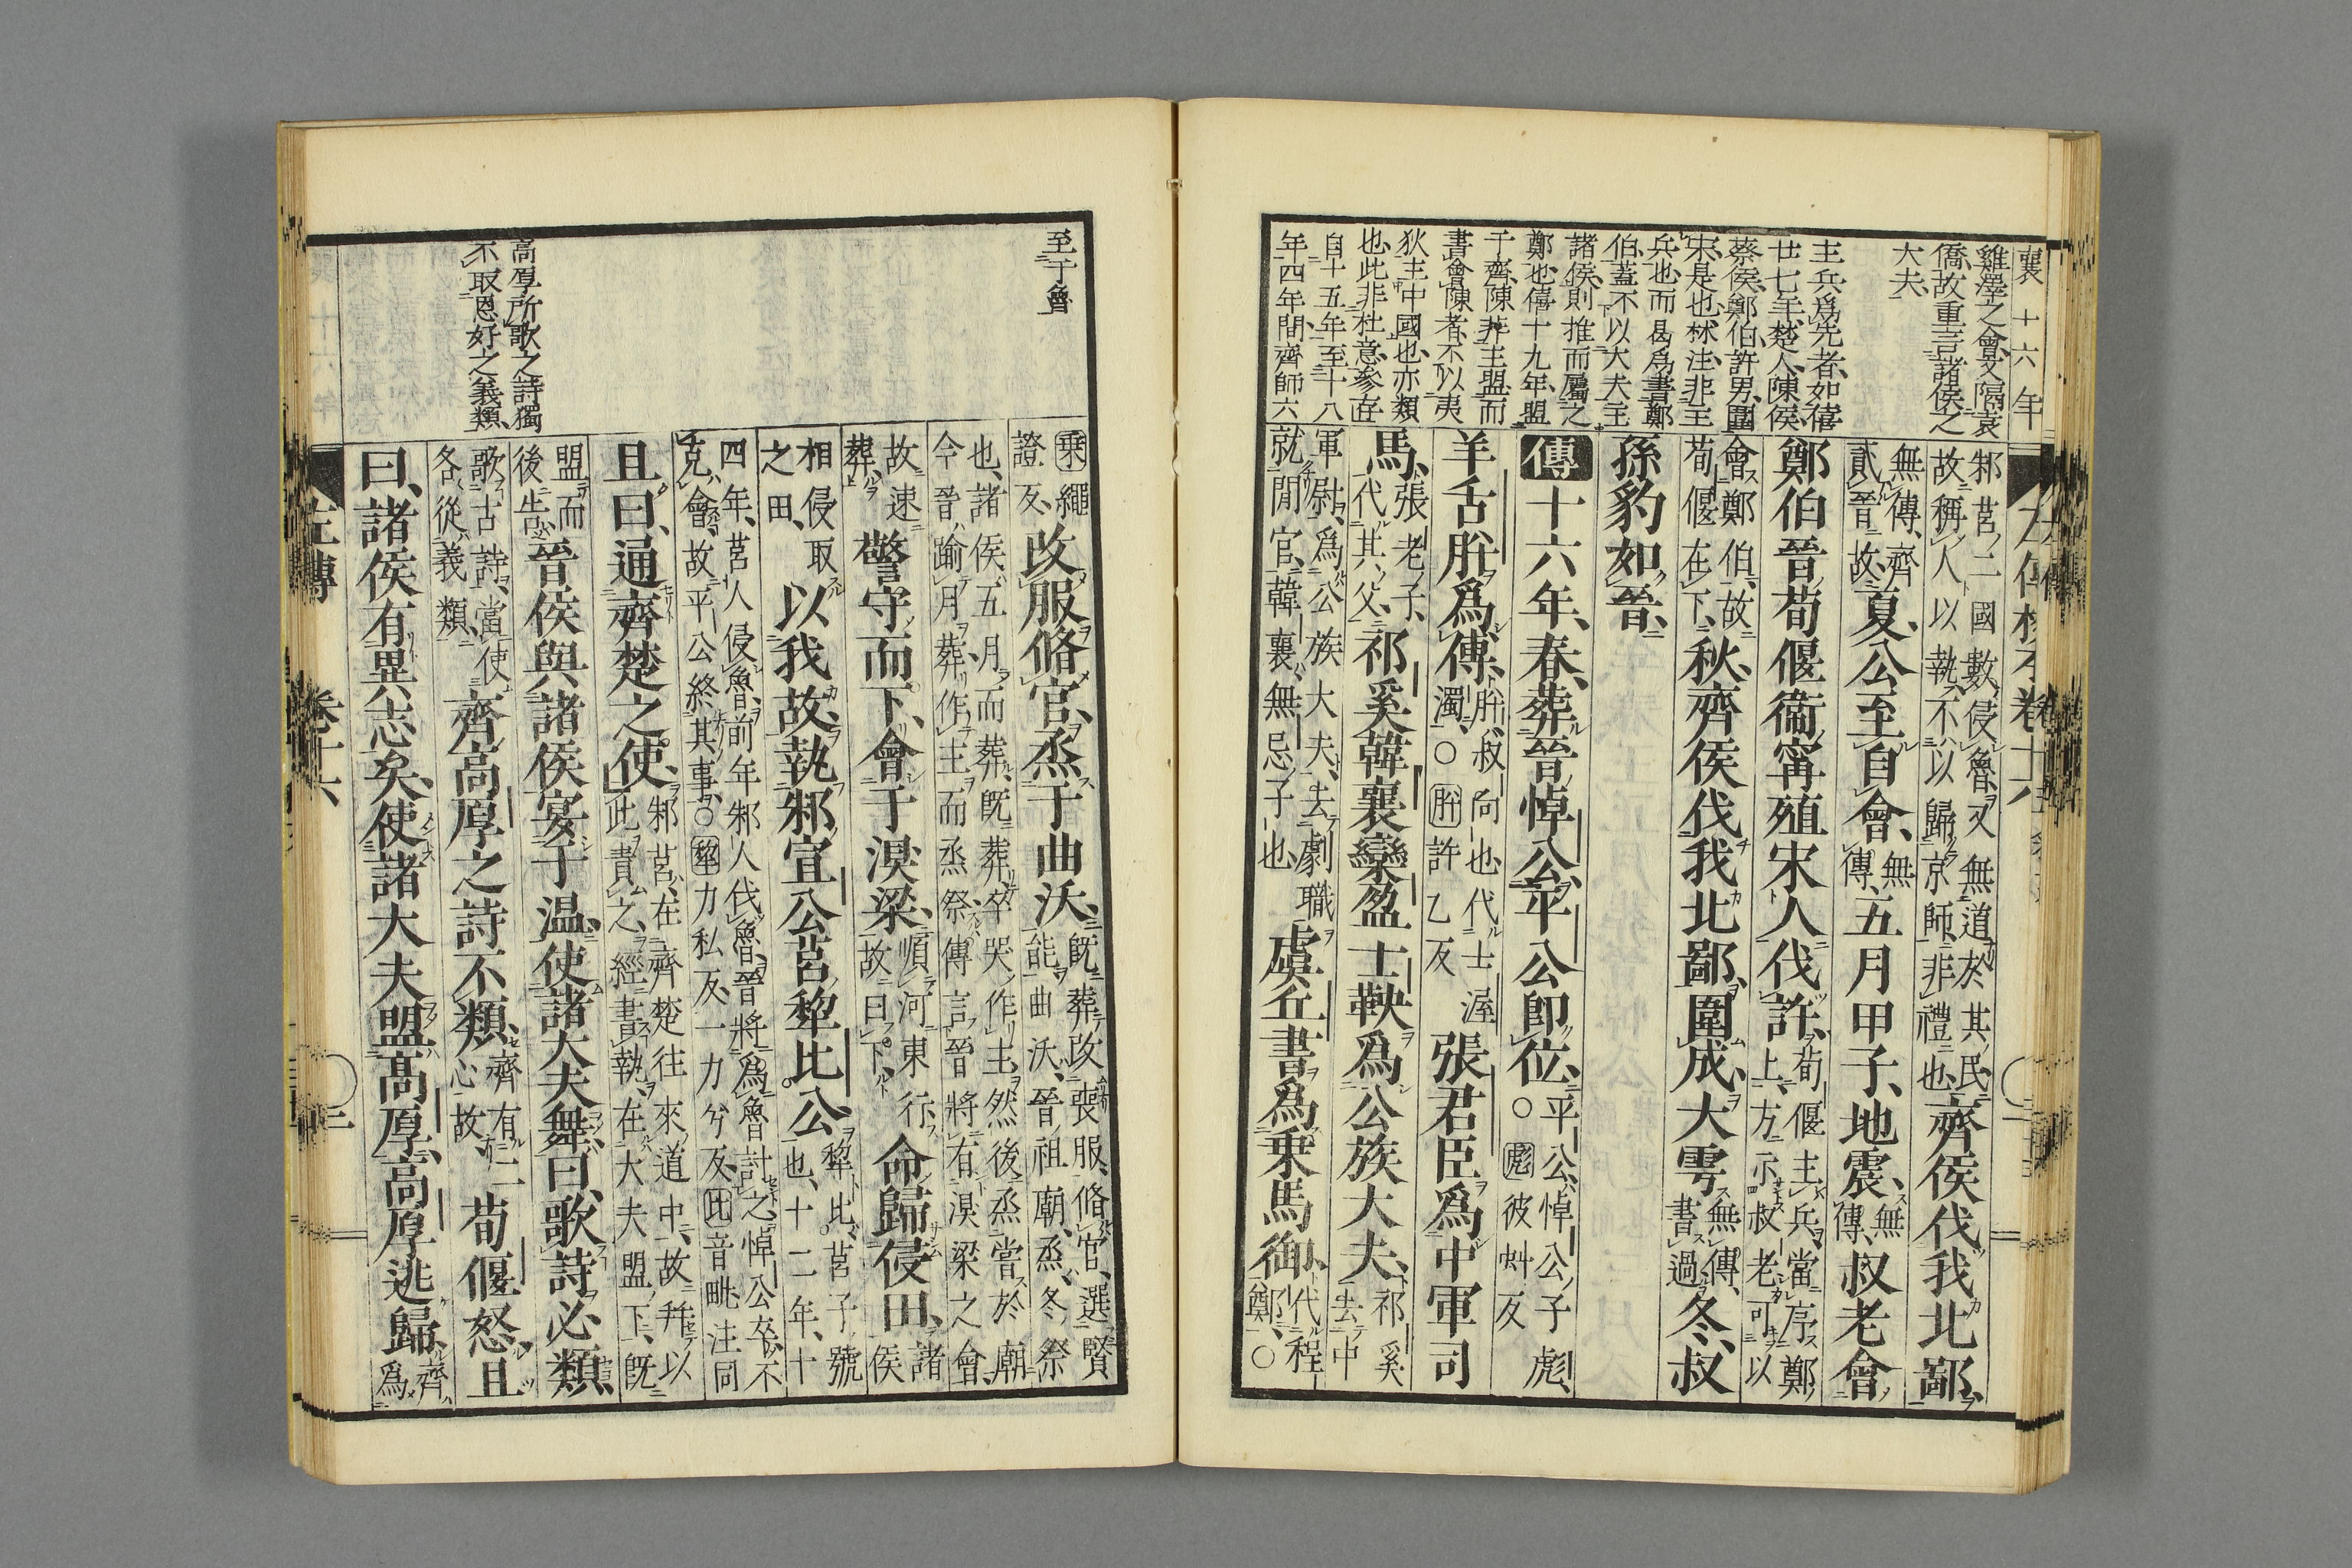 襄十六年
雞澤之會又隔袁
僑故重言諸侯之
大夫
主兵爲先者如僖
廿七年楚人陳侯
蔡侯鄭伯許男圍
宋是也林注非主
兵也而曷爲書鄭
伯蓋不以大夫主
諸侯則推而屬之
鄭也僖十九年盟
于齊陳非主盟而
書會陳者不以夷
狄主中國也亦類
也此非杜意參存
自十五年至十八
年四年間齊師六
邾莒二國數侵魯又無道於其民故稱人以執不以歸京師非禮也齊侯伐我北鄙
無傳齊貳晉故夏公至自會無傳五月甲子地震無傳叔老會
鄭伯晉荀偃衞甯殖宋人伐許荀偃主兵當序鄭上方示叔老可以
會鄭伯故荀偃在下秋齊侯伐我北鄙圍成大雩無傳書過冬叔
孫豹如晉
傳十六年春葬晉悼公平公卽位平公悼公子彪○彪彼虯反
羊舌肸爲傅肸叔向也代士渥濁○肸許乙反張君臣爲中軍司
馬張老子代其父祁奚韓襄欒盈士鞅爲公族大夫祁奚去中
軍尉爲公族大夫去劇職就閒官韓襄無忌子也虞丘書爲乘馬御代程鄭○
至于會
高厚所歌之詩獨
不取恩好之義類
乘繩證反改服脩官烝于曲沃旣葬改喪服脩官選賢能曲沃晉祖廟烝冬祭
也諸侯五月而葬旣葬卒哭作主然後烝嘗於廟今晉踰月葬作主而烝祭傳言晉將有湨梁之會
故速葬警守而下會于湨梁順河東行故曰下命歸侵田諸侯
相侵取之田以我故執邾宣公莒犂比公犂比莒子號也十二年十
四年莒人侵魯前年邾人伐魯晉將爲魯討之悼公卒不克會故平公終其事○犂力私反一力兮反比音毗注同
且曰通齊楚之使邾莒在齊楚往來道中故幷以此責之經書執在大夫盟下旣
盟而後吿晉侯與諸侯宴于温使諸大夫舞曰歌詩必類
歌古詩當使各從義類齊高厚之詩不類齊有二心故荀偃怒且
曰諸侯有異志矣使諸大夫盟高厚高厚逃歸齊爲
左傳 卷十六